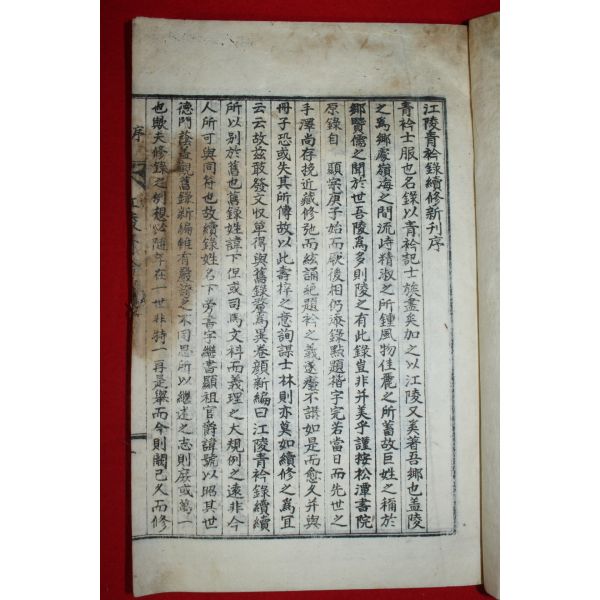 江陵青衿錄續修新刊序
青衿士服也名錄以青衿記士族盡矣加之以江陵又美著吾鄉也盖陵
之爲鄉處嶺海之間流峙精淑之所鍾風物佳麗之所蓄故巨姓之稱於
鄉賢儒之聞於世吾陵爲多則陵之有此錄豈非并美乎謹按松潭書院
原錄自 顯宗庚子始而厥後相仍漆錄點題楷字完若當日而先世之
手澤尚存挽近藏修弛而絃誦絶題衿之義遂癈不講如是而愈久并與
冊子恐或失其所傳故以此壽梓之意詢謀士林則亦莫如續修之爲宜
云云故玆敢發文收單得與舊錄彙爲異卷顔新編曰江陵青衿錄續續
所以别於舊也舊錄姓諱下但或司馬文科而義理之大規例之遠非今
人所可與同符也故續錄姓名下旁書字繼書顯祖官爵諱號以昭其世
德門蔭盖觀舊錄新編雖有嚴詮之不同思所以繼述之志則庶或萬一
也歟夫修錄之例想必隨年在一世非特一再是擧而今則闊已久而修
序